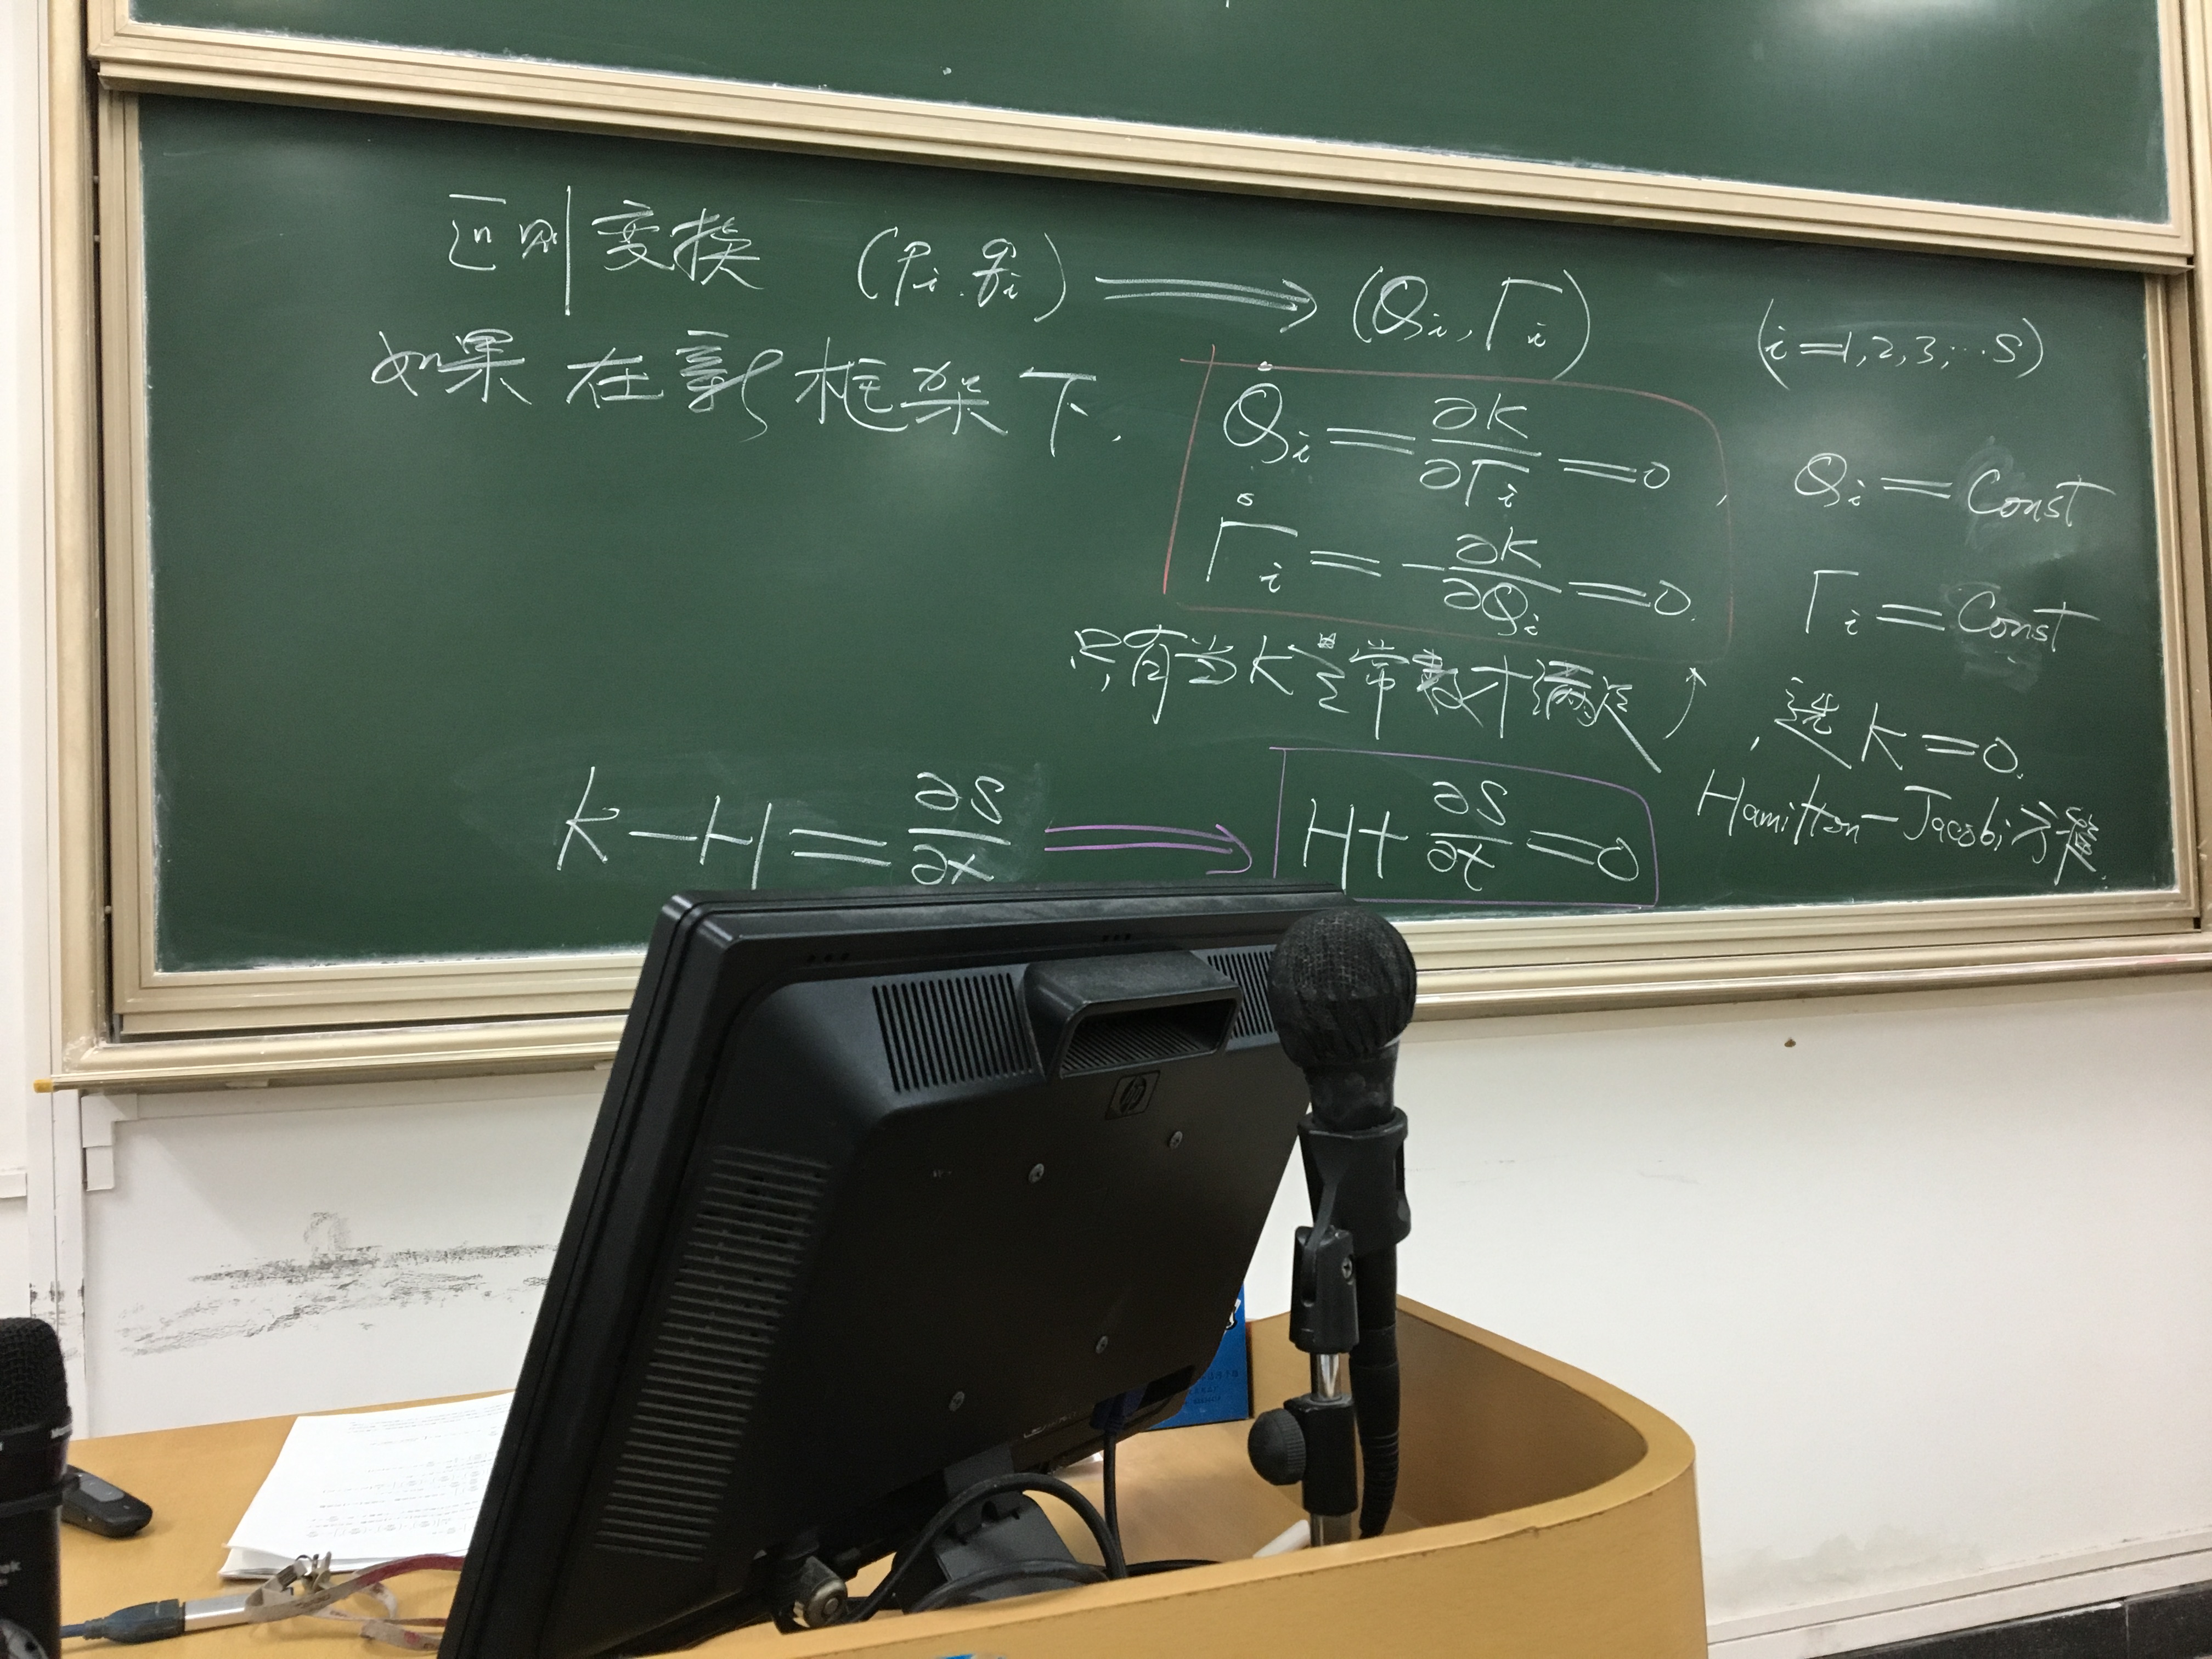 正则变换 (pᵢ.qᵢ) ⟹ (Qᵢ,Γᵢ) (i=1,2,3,…S)
如果在新框架下.
Q̇ᵢ = ∂K/∂Γᵢ = 0, Qᵢ = Const
Γ̇ᵢ = -∂K/∂Qᵢ = 0. Γᵢ = Const
只有当K是常数才满足, 选K=0.
K-H = ∂S/∂t ⟹ H+∂S/∂t=0 Hamilton-Jacobi方程.
hp